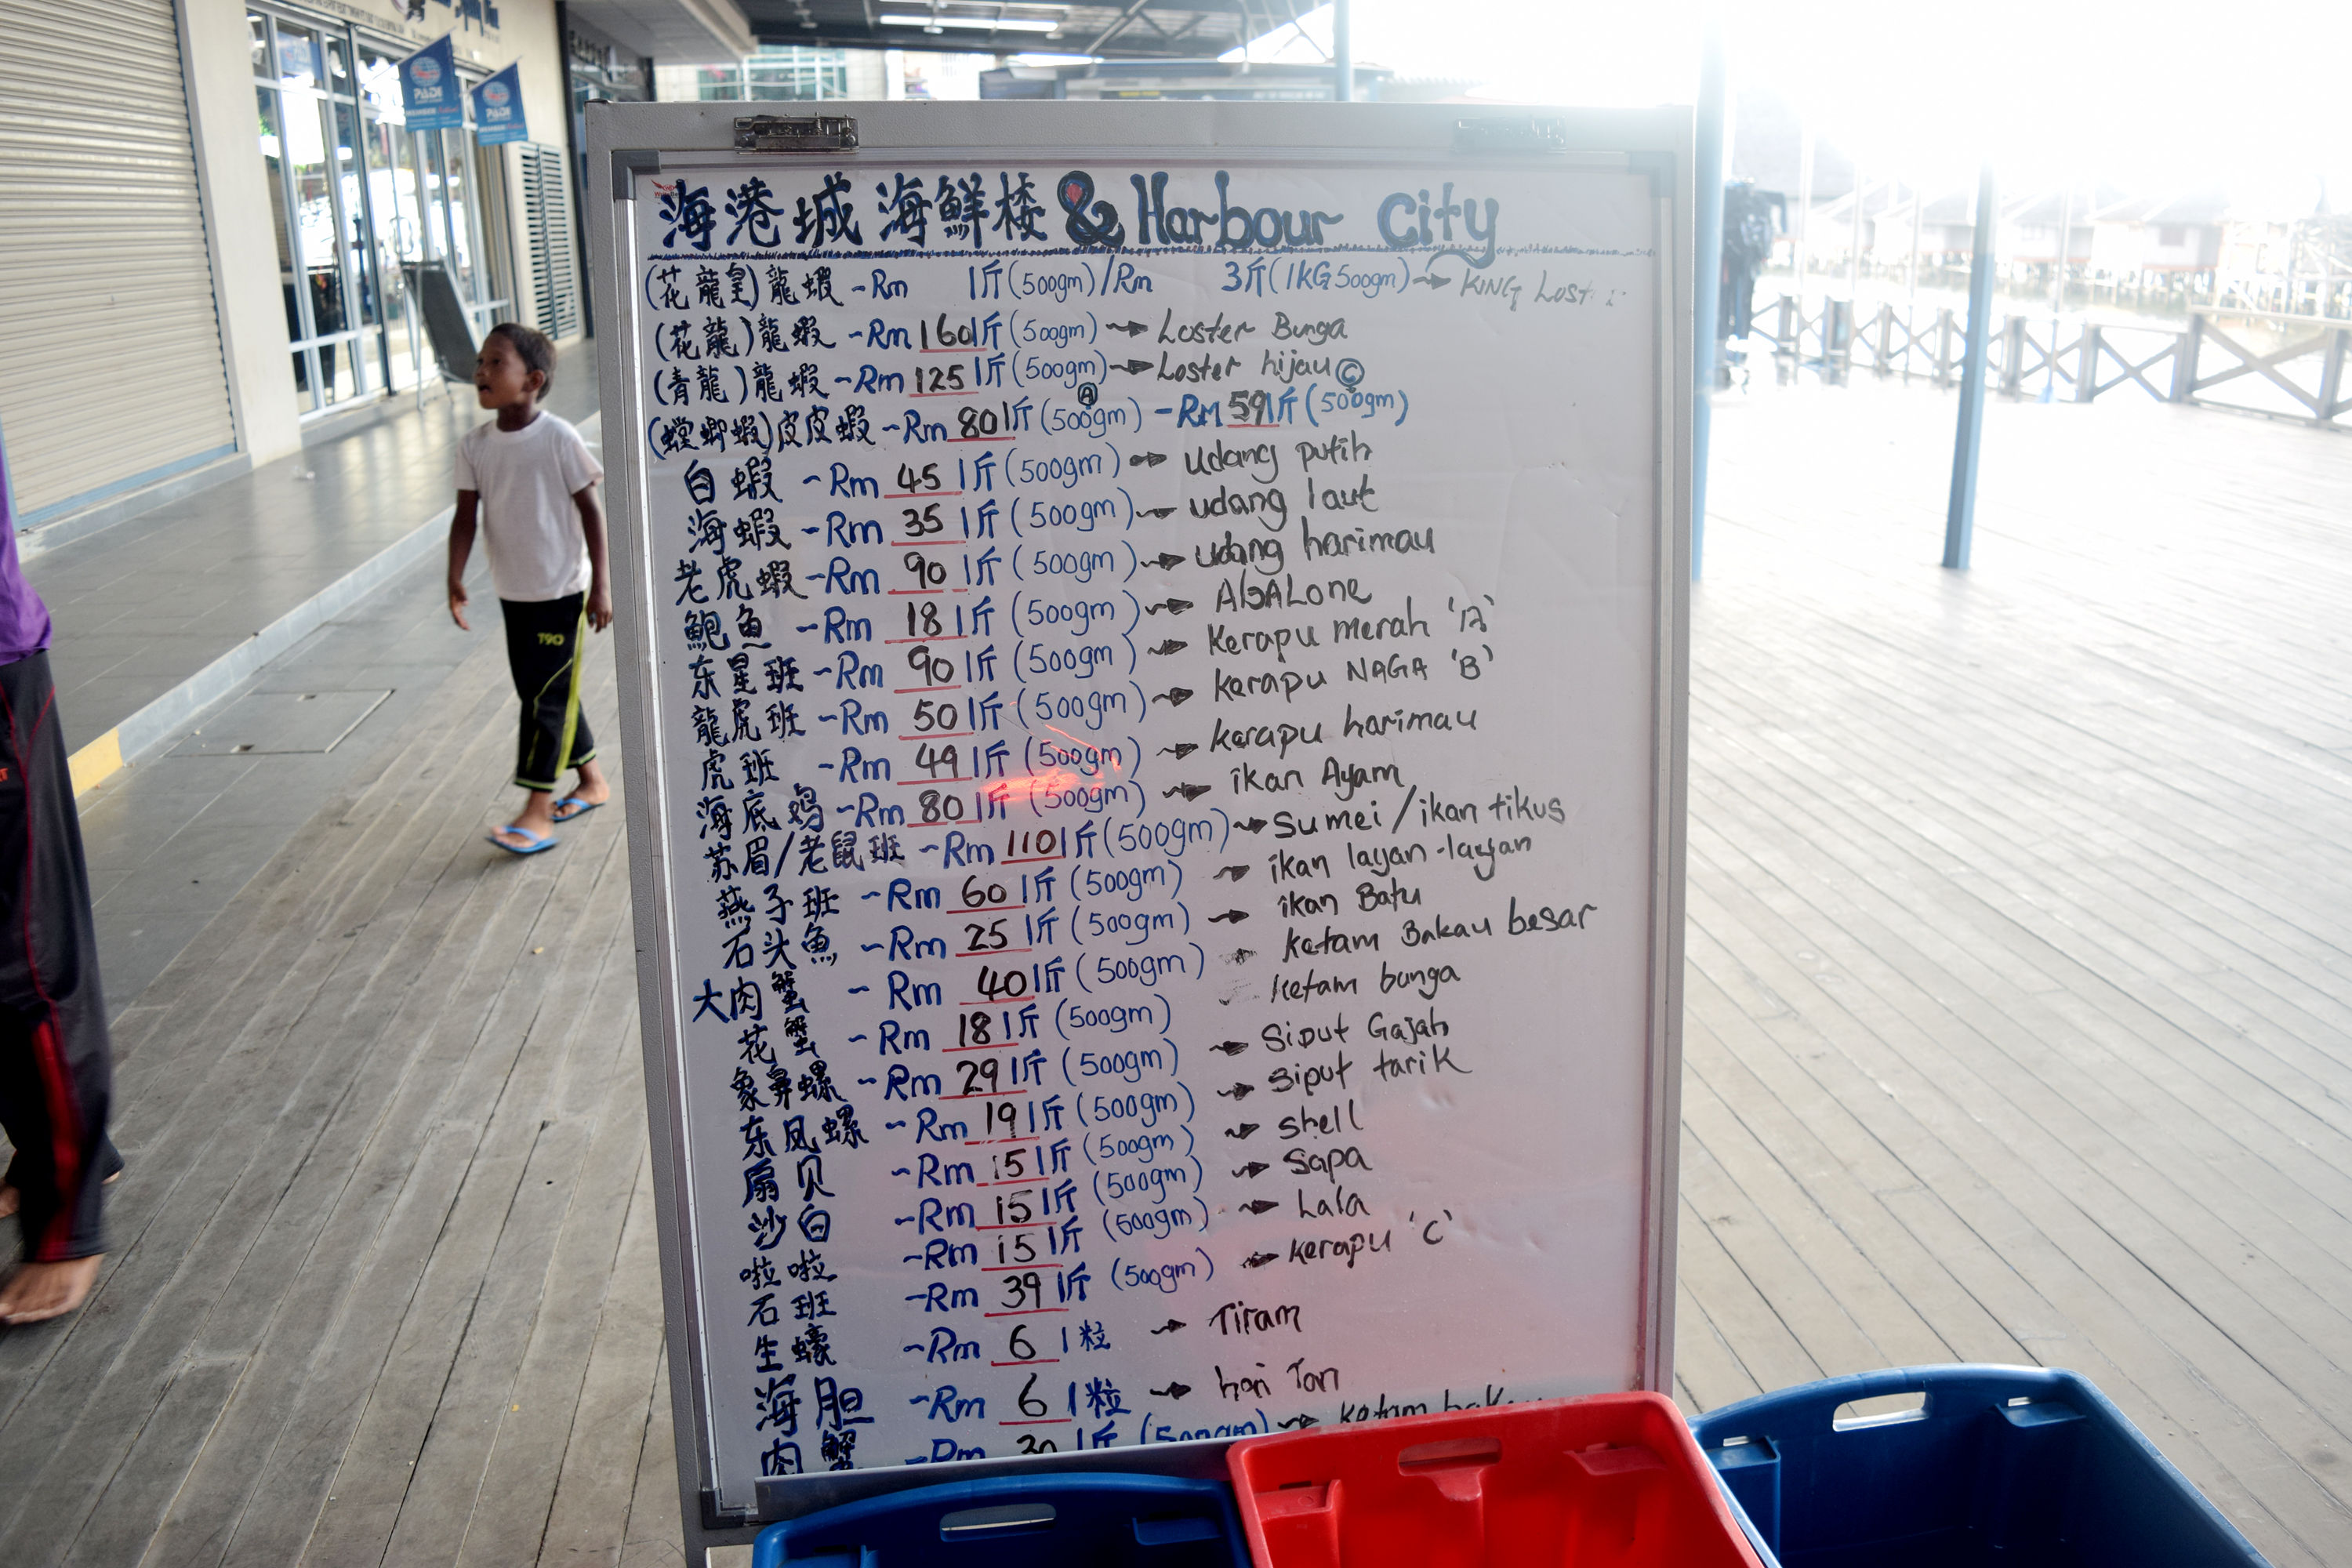 PADI
PADI
海港城 海鮮楼 & Harbour City
(花龍皇)龍蝦 -Rm 1斤(500gm)/Rm 3斤(1KG500gm) → KING
(花龍)龍蝦 -Rm 160 1斤(500gm) → Loster Bunga
(青龍)龍蝦 -Rm 125 1斤(500gm) → Loster hijau
(螳螂蝦)皮皮蝦 -Rm 80 1斤(500gm) Ⓐ -RM 59 1斤(500gm) Ⓒ
白蝦 -Rm 45 1斤(500gm) → udang putih
海蝦 -Rm 35 1斤(500gm) → udang laut
老虎蝦 -Rm 90 1斤(500gm) → udang harimau
鮑魚 -Rm 18 1斤(500gm) → AbALone
东星班 -Rm 90 1斤(500gm) → Kerapu merah 'A'
龍虎班 -Rm 50 1斤(500gm) → kerapu NAGA 'B'
虎班 -Rm 49 1斤(500gm) → kerapu harimau
海底鸡 -Rm 80 1斤(500gm) → ikan Ayam
苏眉/老鼠班 -Rm 110 1斤(500gm) → Sumei/ikan tikus
燕子班 -Rm 60 1斤(500gm) → ikan layan-layan
石头魚 -Rm 25 1斤(500gm) → ikan Batu
大肉蟹 - Rm 40 1斤(500gm) → ketam Bakau besar
花蟹 -Rm 18 1斤(500gm) ketam bunga
象鼻螺 -Rm 29 1斤(500gm) → Siput Gajah
东风螺 -Rm 19 1斤(500gm) → Siput tarik
扇贝 -Rm 15 1斤(500gm) → shell
沙白 -Rm 15 1斤(500gm) → Sapa
啦啦 -Rm 15 1斤(500gm) → Lala
石班 -Rm 39 1斤(500gm) → kerapu 'C'
生蠔 -Rm 6 1粒 → Tiram
海胆 -Rm 6 1粒 → hoi Tan
肉蟹 -Rm 30 1斤(500gm) → ketam
T90